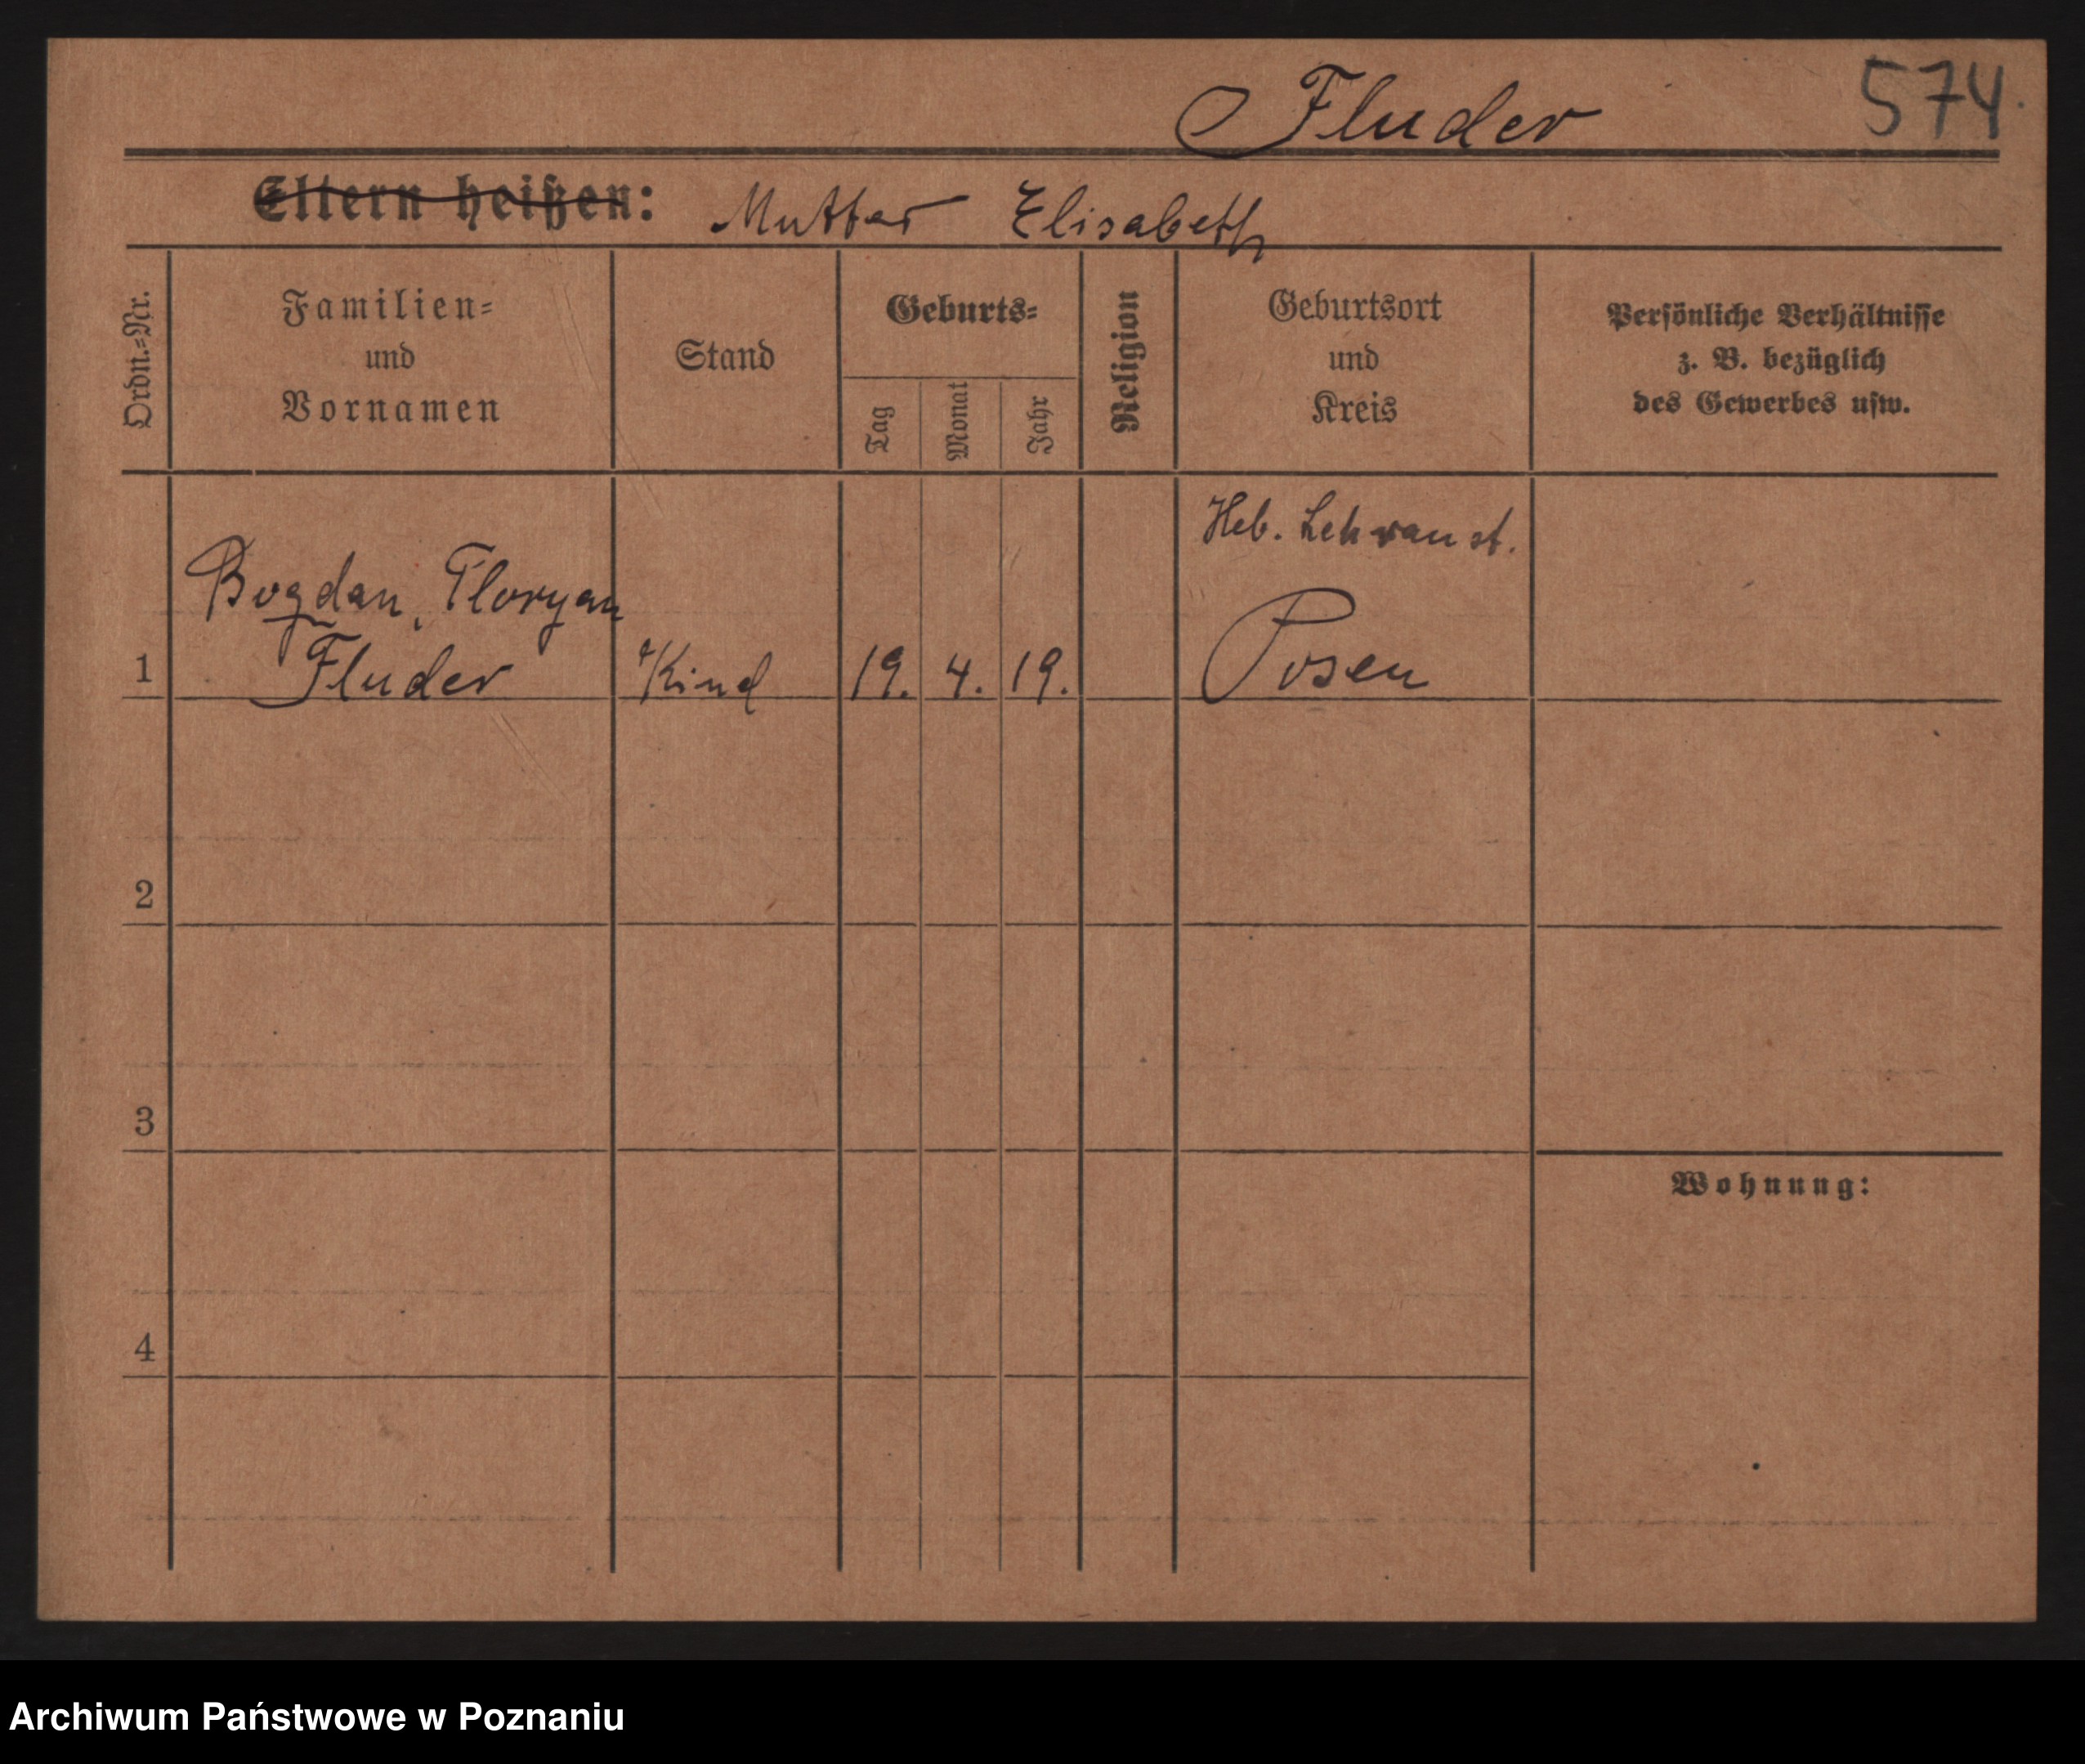 Fluder 574.
Eltern heißen: Mutter Elisabeth
Ordn.=Nr.
Familien=
und
Vornamen
Stand
Geburts=
Tag
Monat
Jahr
Religion
Geburtsort
und
Kreis
Persönliche Verhältnisse
z. B. bezüglich
des Gewerbes usw.
Heb. Lehranst.
Bogdan, Floryan
1 Fluder Kind 19. 4. 19. Posen
2
3
Wohnung:
4
Archiwum Państwowe w Poznaniu